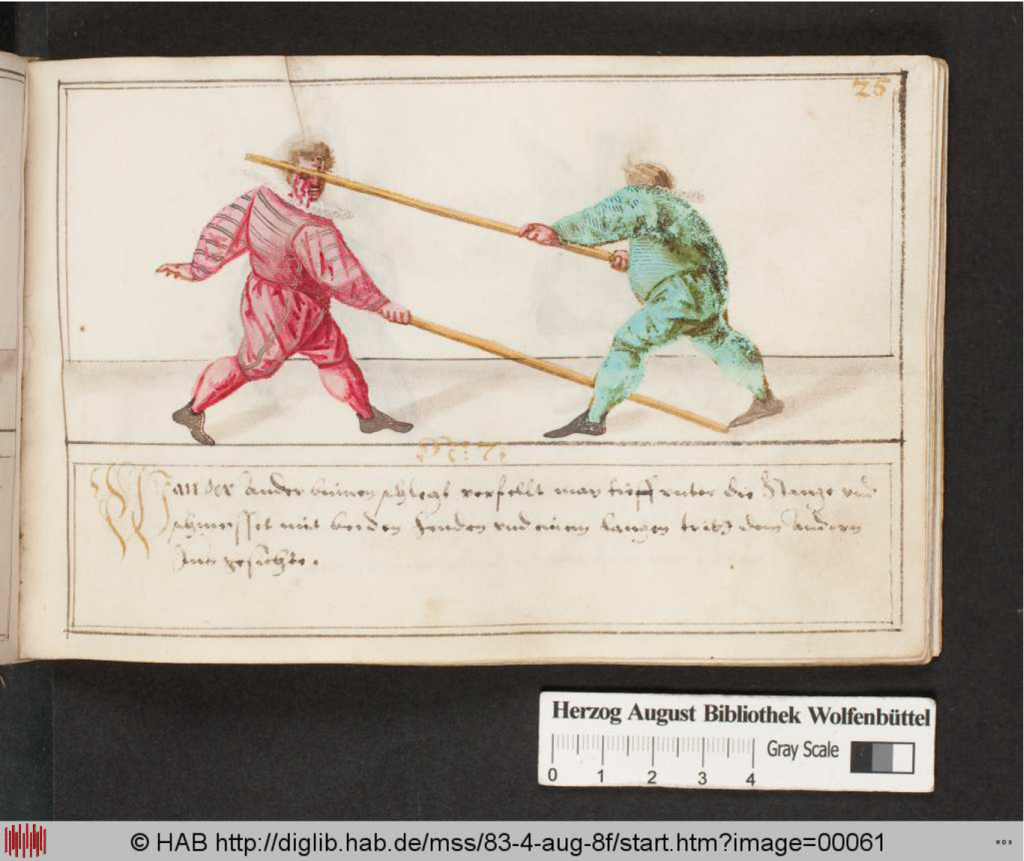 25
Wan der ander binnen schlegt verfellt man tieff unter die Stange und
schmeisset mit beiden henden und einem langen tritt dem andern
Ins gesichte.
Herzog August Bibliothek Wolfenbüttel
Gray Scale
0 1 2 3 4
© HAB http://diglib.hab.de/mss/83-4-aug-8f/start.htm?image=00061